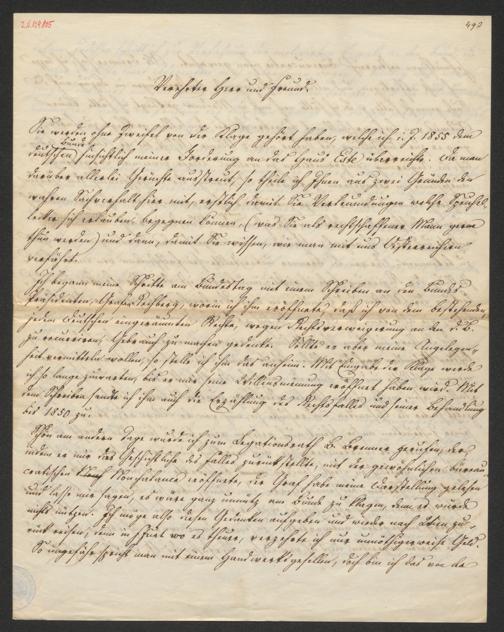 490
Verehrter Herr und Freund.
Sie werden ohne Zweifel von der Klage gehört haben, welche ich i. J. 1855 dem
deutschen Bund hinsichtlich meiner Forderung an das Haus Este überreichte. Da man
darüber allerlei Gerüchte ausstreut, so theile ich Ihnen aus zwei Gründen den
wahren Sachverhalt hier mit, erstlich damit Sie Verleumdungen welche
sich erlauben, begegnen können, (was Sie als rechtschaffener Mann gern
thun werden) und dann, damit Sie wissen, wie man mit uns Österreichern
verfährt.
Ich begann meine Schritte am Bundestag mit einem Schreiben an den Bundes
Präsidenten, Grafen Rechberg, worin ich ihm eröffnete, daß ich von dem bestehenden
jedem Deutschen eingeräumten Rechte, wegen Rechtsverweigerung an den d. B.
zu recurriren, Gebrauch zu machen gedenke. Sollte er aber meine Angelegen¬
heit vermitteln wollen, so stelle ich ihm das anheim. Mit Eingabe der Klage werde
ich so lange zuwarten, bis er mir seine Willensmeinung eröffnet haben wird. Mit
dem Schreiben sende ich ihm auch die Erzählung des Rechtsfalles und seiner Behandlung
bis 1850 zu.
Schon am andern Tage wurde ich zum Legationsrath B. Brenner gerufen, der
indem er mir das Geschichtliche des Falles zurückstellte, mit der gewöhnlichen bureau
cratischen Nonchalance eröffnete, der Graf habe meine Darstellung gelesen
und lasse mir sagen, es wäre ganz unnütz am Bund zu klagen, denn es würde
nichts nützen. Ich möge also diesen Gedanken aufgeben und wieder nach Wien zu
rückreisen, denn in Frkft wo es theuer, verzehrte ich nur unnöthigerweise Geld.
So ungefähr spricht man mit einem Handwerksgesellen, doch bin ich das von da